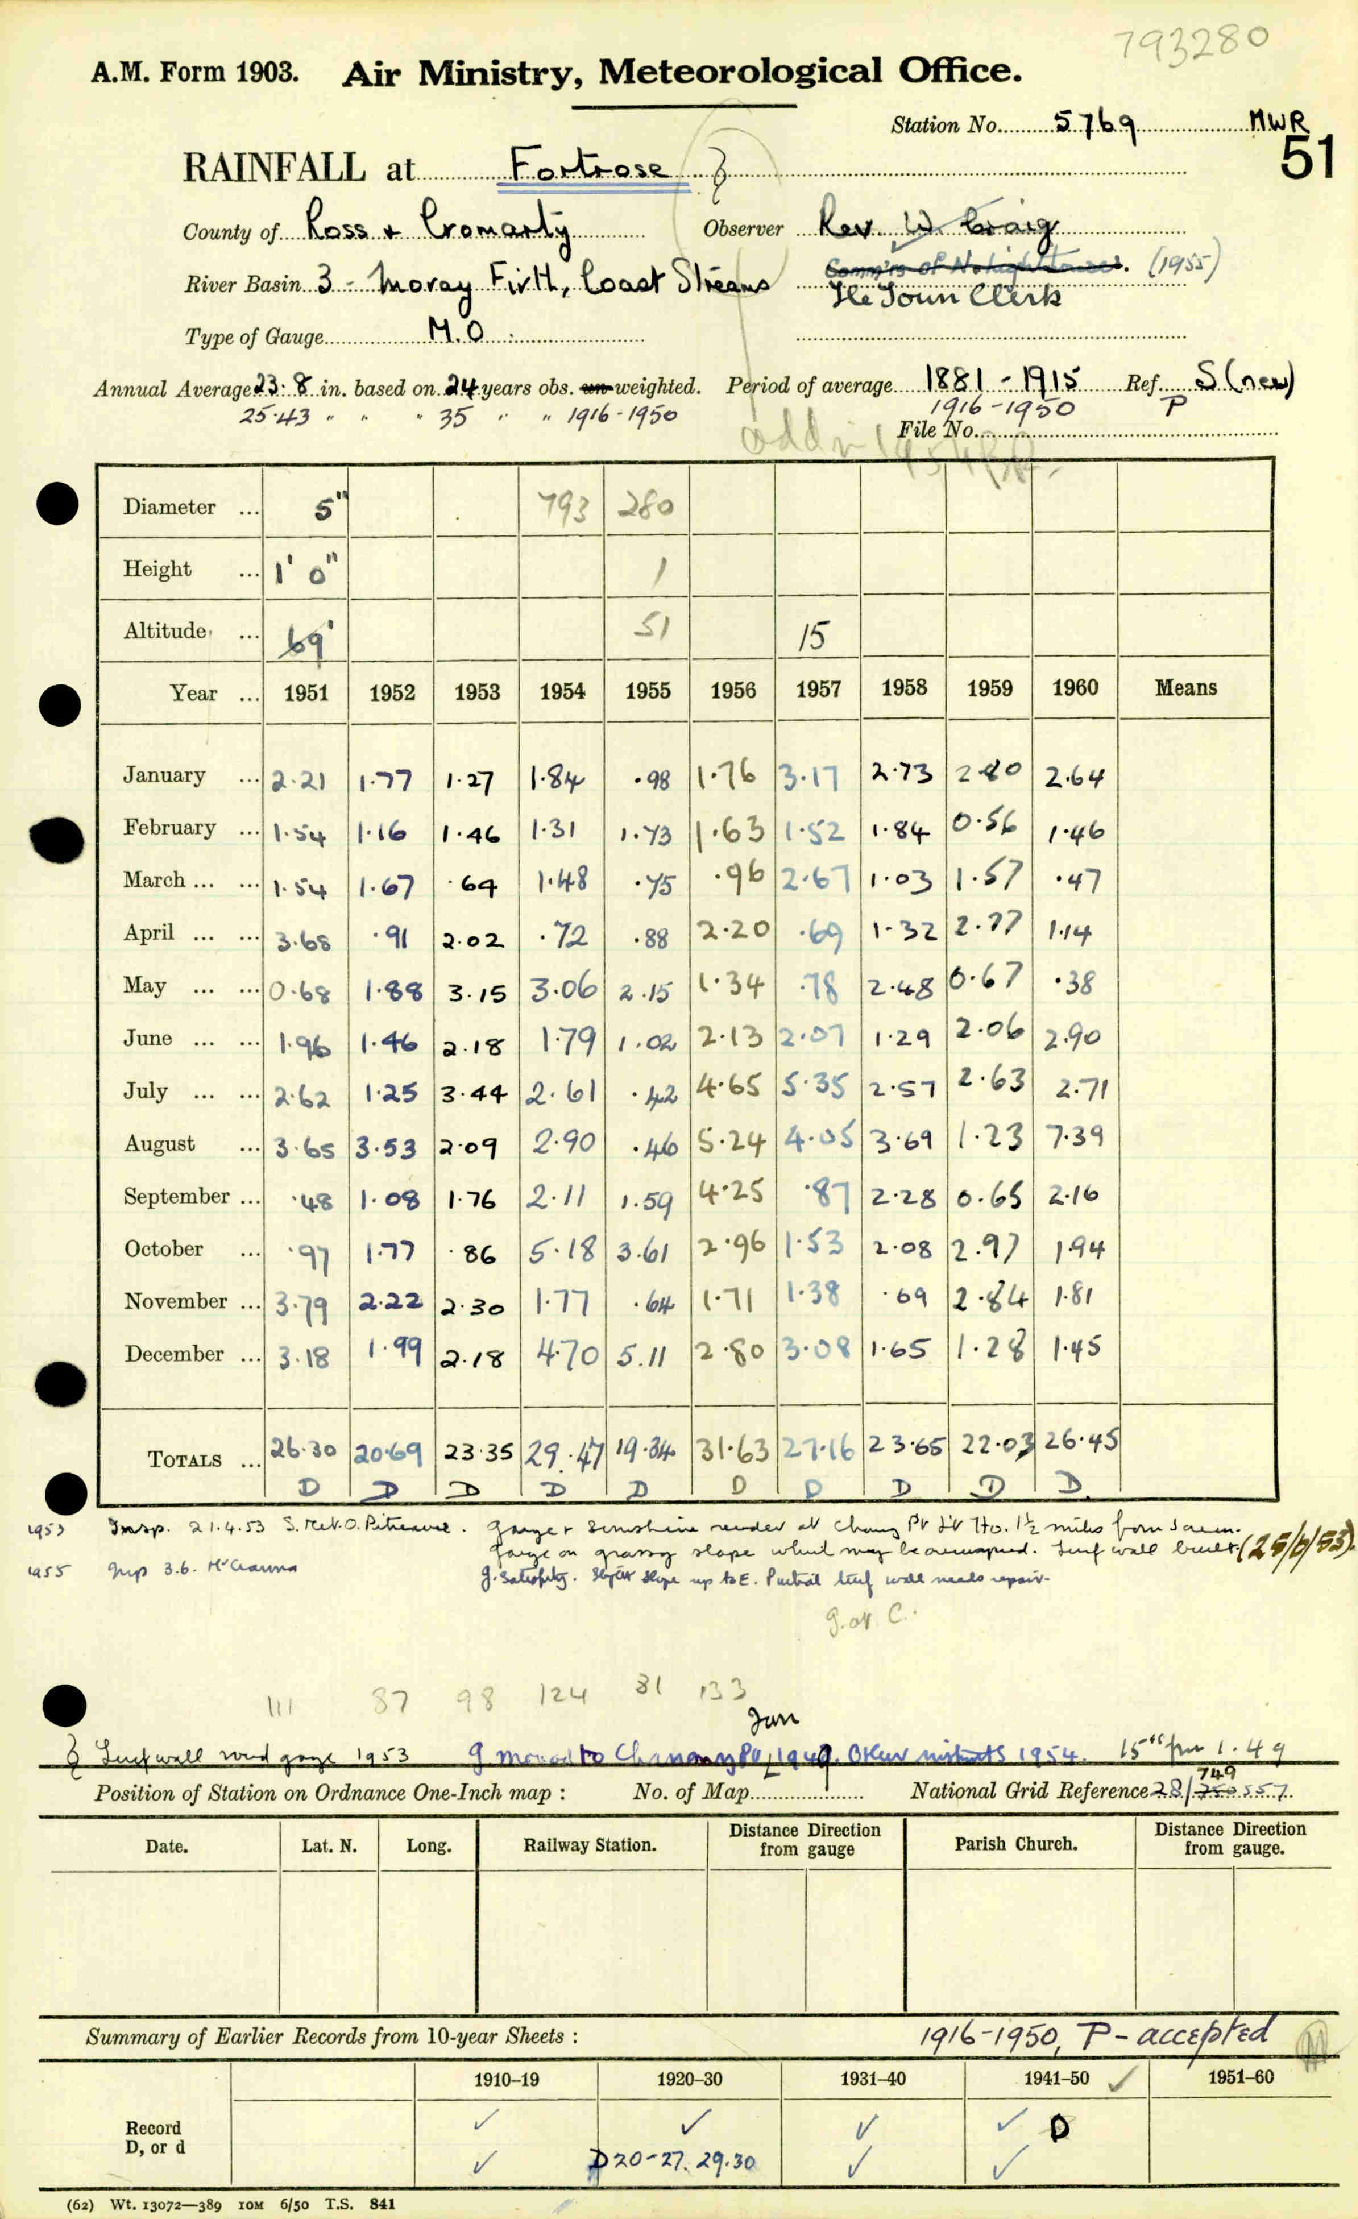 793280
A.M. Form 1903. Air Ministry, Meteorological Office.
Station No. 5769 MWR
51
RAINFALL at Fortrose
County of Ross + Cromarty Observer Rev. W. Craig
Comm'rs of N. Lighthouses. (1955)
River Basin 3 - Moray Firth, Coast Streams The Town Clerk
Type of Gauge M.O.
Annual Average 23.8 in. based on 24 years obs. un-weighted. Period of average 1881 - 1915 Ref. S (new)
25.43 " " " 35 " " 1916-1950 1916-1950 P
File No.
Diameter ... 5" 793 280
Height ... 1' 0" 1
Altitude ... 69' 51 15
Year ... 1951 1952 1953 1954 1955 1956 1957 1958 1959 1960 Means
January ... 2.21 1.77 1.27 1.84 .98 1.76 3.17 2.73 2.80 2.64
February ... 1.54 1.16 1.46 1.31 1.73 1.63 1.52 1.84 0.56 1.46
March ... ... 1.54 1.67 .64 1.48 .75 .96 2.67 1.03 1.57 .47
April ... ... 3.68 .91 2.02 .72 .88 2.20 .69 1.32 2.77 1.14
May ... ... 0.68 1.88 3.15 3.06 2.15 1.34 .78 2.48 0.67 .38
June ... ... 1.96 1.46 2.18 1.79 1.02 2.13 2.07 1.29 2.06 2.90
July ... ... 2.62 1.25 3.44 2.61 .42 4.65 5.35 2.57 2.63 2.71
August ... 3.65 3.53 2.09 2.90 .46 5.24 4.05 3.69 1.23 7.39
September ... .48 1.08 1.76 2.11 1.59 4.25 .87 2.28 0.65 2.16
October ... .97 1.77 .86 5.18 3.61 2.96 1.53 2.08 2.97 1.94
November ... 3.79 2.22 2.30 1.77 .64 1.71 1.38 .69 2.84 1.81
December ... 3.18 1.99 2.18 4.70 5.11 2.80 3.08 1.65 1.28 1.45
TOTALS ... 26.30 20.69 23.35 29.47 19.34 31.63 27.16 23.65 22.03 26.45
D D D D D D D D D D
1953 Insp. 21.4.53 S. Met. O. Pitreavie. gauge + sunshine recorder at Chanry Pt Lt Ho. 1½ miles from
gauge on grassy slope which may be Turf wall built (25/6/53).
1955 Insp 3.6. g. Slight slope up to E. Partial turf wall needs repair.
g. at C.
111 87 98 124 81 133
Jan
Turf wall round gauge 1953 g moved to Chanonry Pt 1949. 1954. 15" from 1.49
Position of Station on Ordnance One-Inch map : No. of Map National Grid Reference 28/ 749 750 557
Date. Lat. N. Long. Railway Station. Distance Direction from gauge Parish Church. Distance Direction from gauge.
Summary of Earlier Records from 10-year Sheets : 1916-1950, P - accepted
1910–19 1920–30 1931–40 1941–50 ✓ 1951–60
Record ✓ ✓ ✓ ✓ D
D, or d ✓ D 20-27. 29.30 ✓ ✓
(62) Wt. 13072—389 10M 6/50 T.S. 841